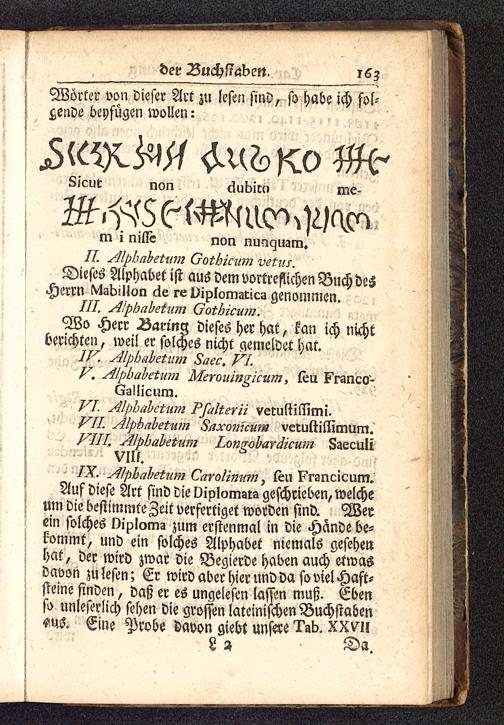 der Buchstaben. 163
Wörter von dieser Art zu lesen sind, so habe ich fol-
gende beyfügen wollen:
Sicut non dubito me-
m i nisse non nunquam.
II. Alphabetum Gothicum vetus.
Dieses Alphabet ist aus dem vortreflichen Buch des
Herrn Mabillon de re Diplomatica genommen.
III. Alphabetum Gothicum.
Wo Herr Baring dieses her hat, kan ich nicht
berichten, weil er solches nicht gemeldet hat.
IV. Alphabetum Saec. VI.
V. Alphabetum Merouingicum, seu Franco-
Gallicum.
VI. Alphabetum Psalterii vetustissimi.
VII. Alphabetum Saxonicum vetustissimum.
VIII. Alphabetum Longobardicum Saeculi
VIII.
IX. Alphabetum Carolinum, seu Francicum.
Auf diese Art sind die Diplomata geschrieben, welche
um die bestimmte Zeit verfertiget worden sind. Wer
ein solches Diploma zum erstenmal in die Hände be-
kommt, und ein solches Alphabet niemals gesehen
hat, der wird zwar die Begierde haben auch etwas
davon zu lesen; Er wird aber hier und da so viel Haft-
steine finden, daß er es ungelesen lassen muß. Eben
so unleserlich sehen die grossen lateinischen Buchstaben
aus. Eine Probe davon giebt unsere Tab. XXVII
L 2 Da